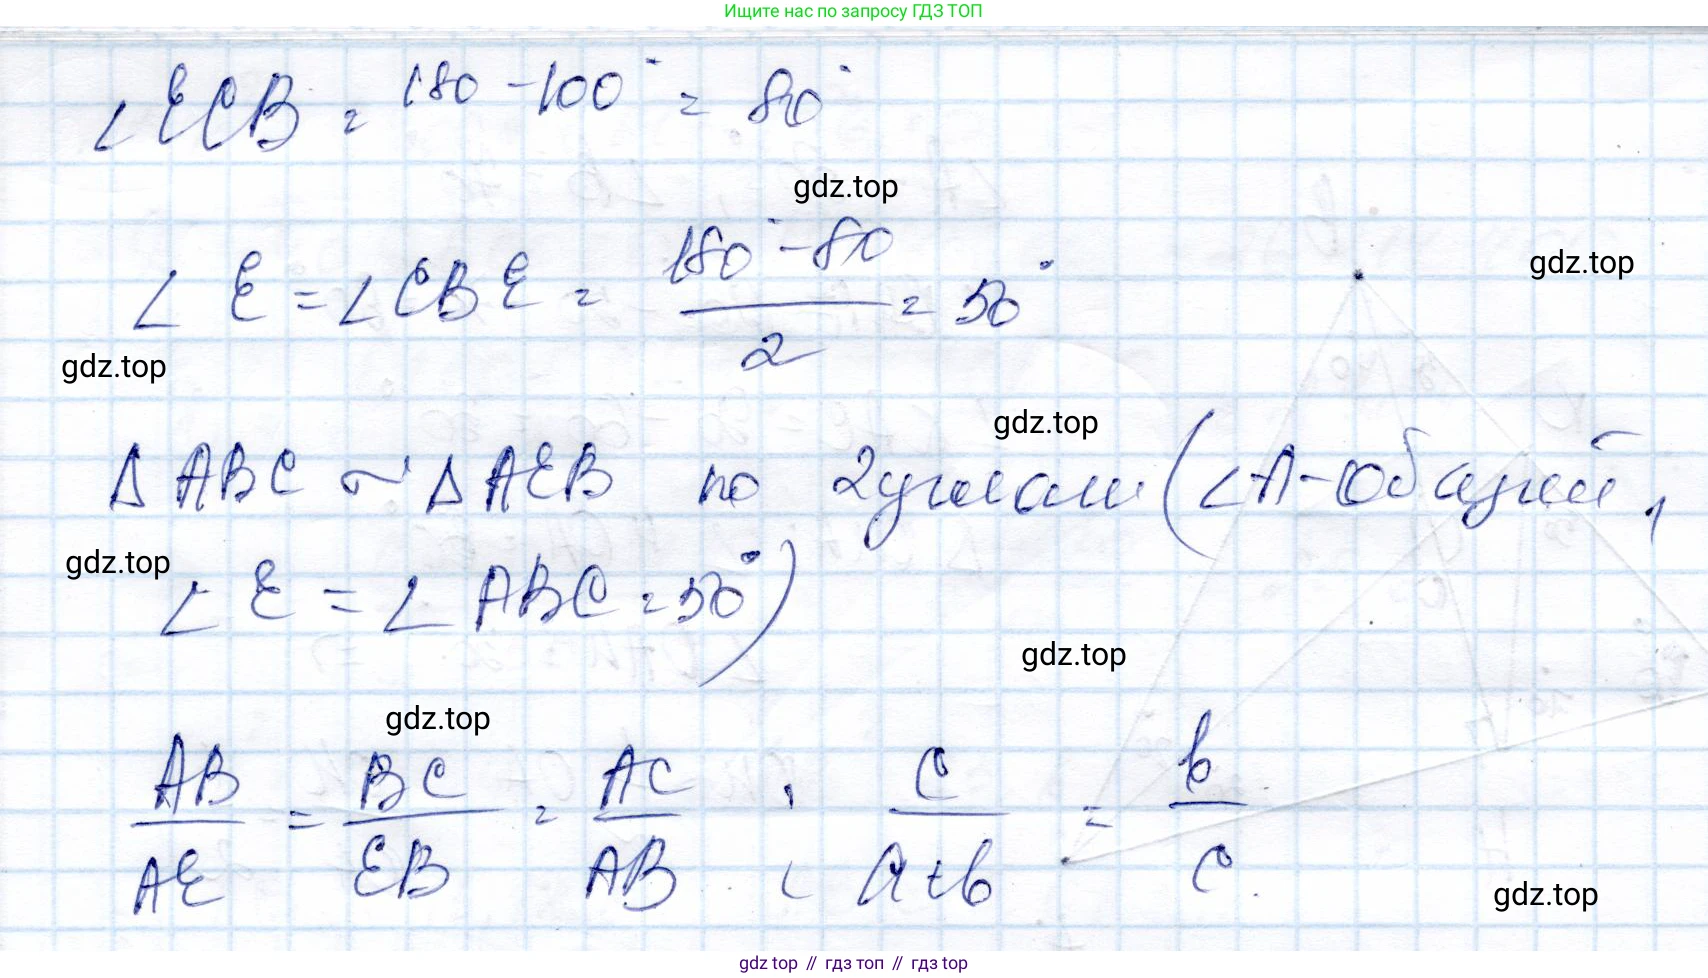 Ищите нас по запросу ГДЗ ТОП
∠ECB = 180 - 100° = 80°
gdz.top
∠E = ∠CBE = (180° - 80) / 2 = 50°
gdz.top
gdz.top
gdz.top
Δ ABC ~ Δ AEB по 2 углам (∠A - общий,
gdz.top
∠E = ∠ABC = 50°)
gdz.top
gdz.top
AB/AE = BC/EB = AC/AB ; c/(a+b) = b/c.
gdz.top
gdz top // гдз топ // gdz top